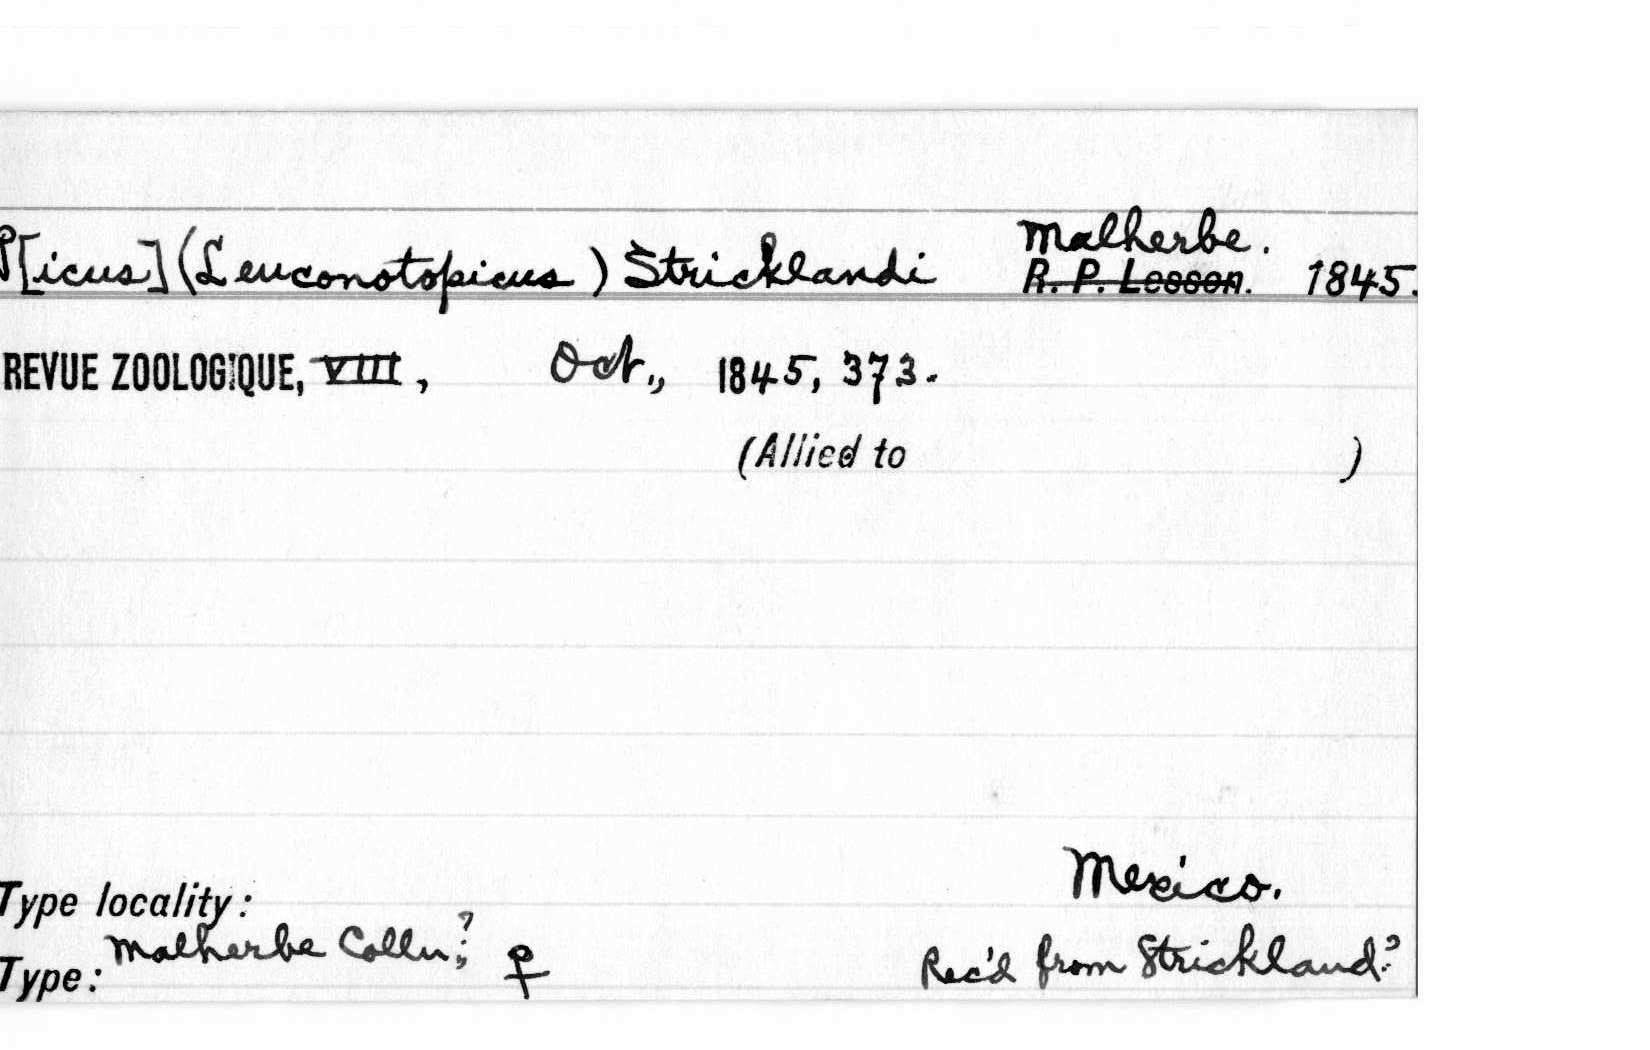 P[icus] (Leuconotopicus) Stricklandi Malherbe. R. P. Lesson. 1845.
REVUE ZOOLOGIQUE, VIII, Oct., 1845, 373.
(Allied to )
Type locality: Mexico.
Type: Malherbe Colln.?; ♀ Rec'd from Strickland?